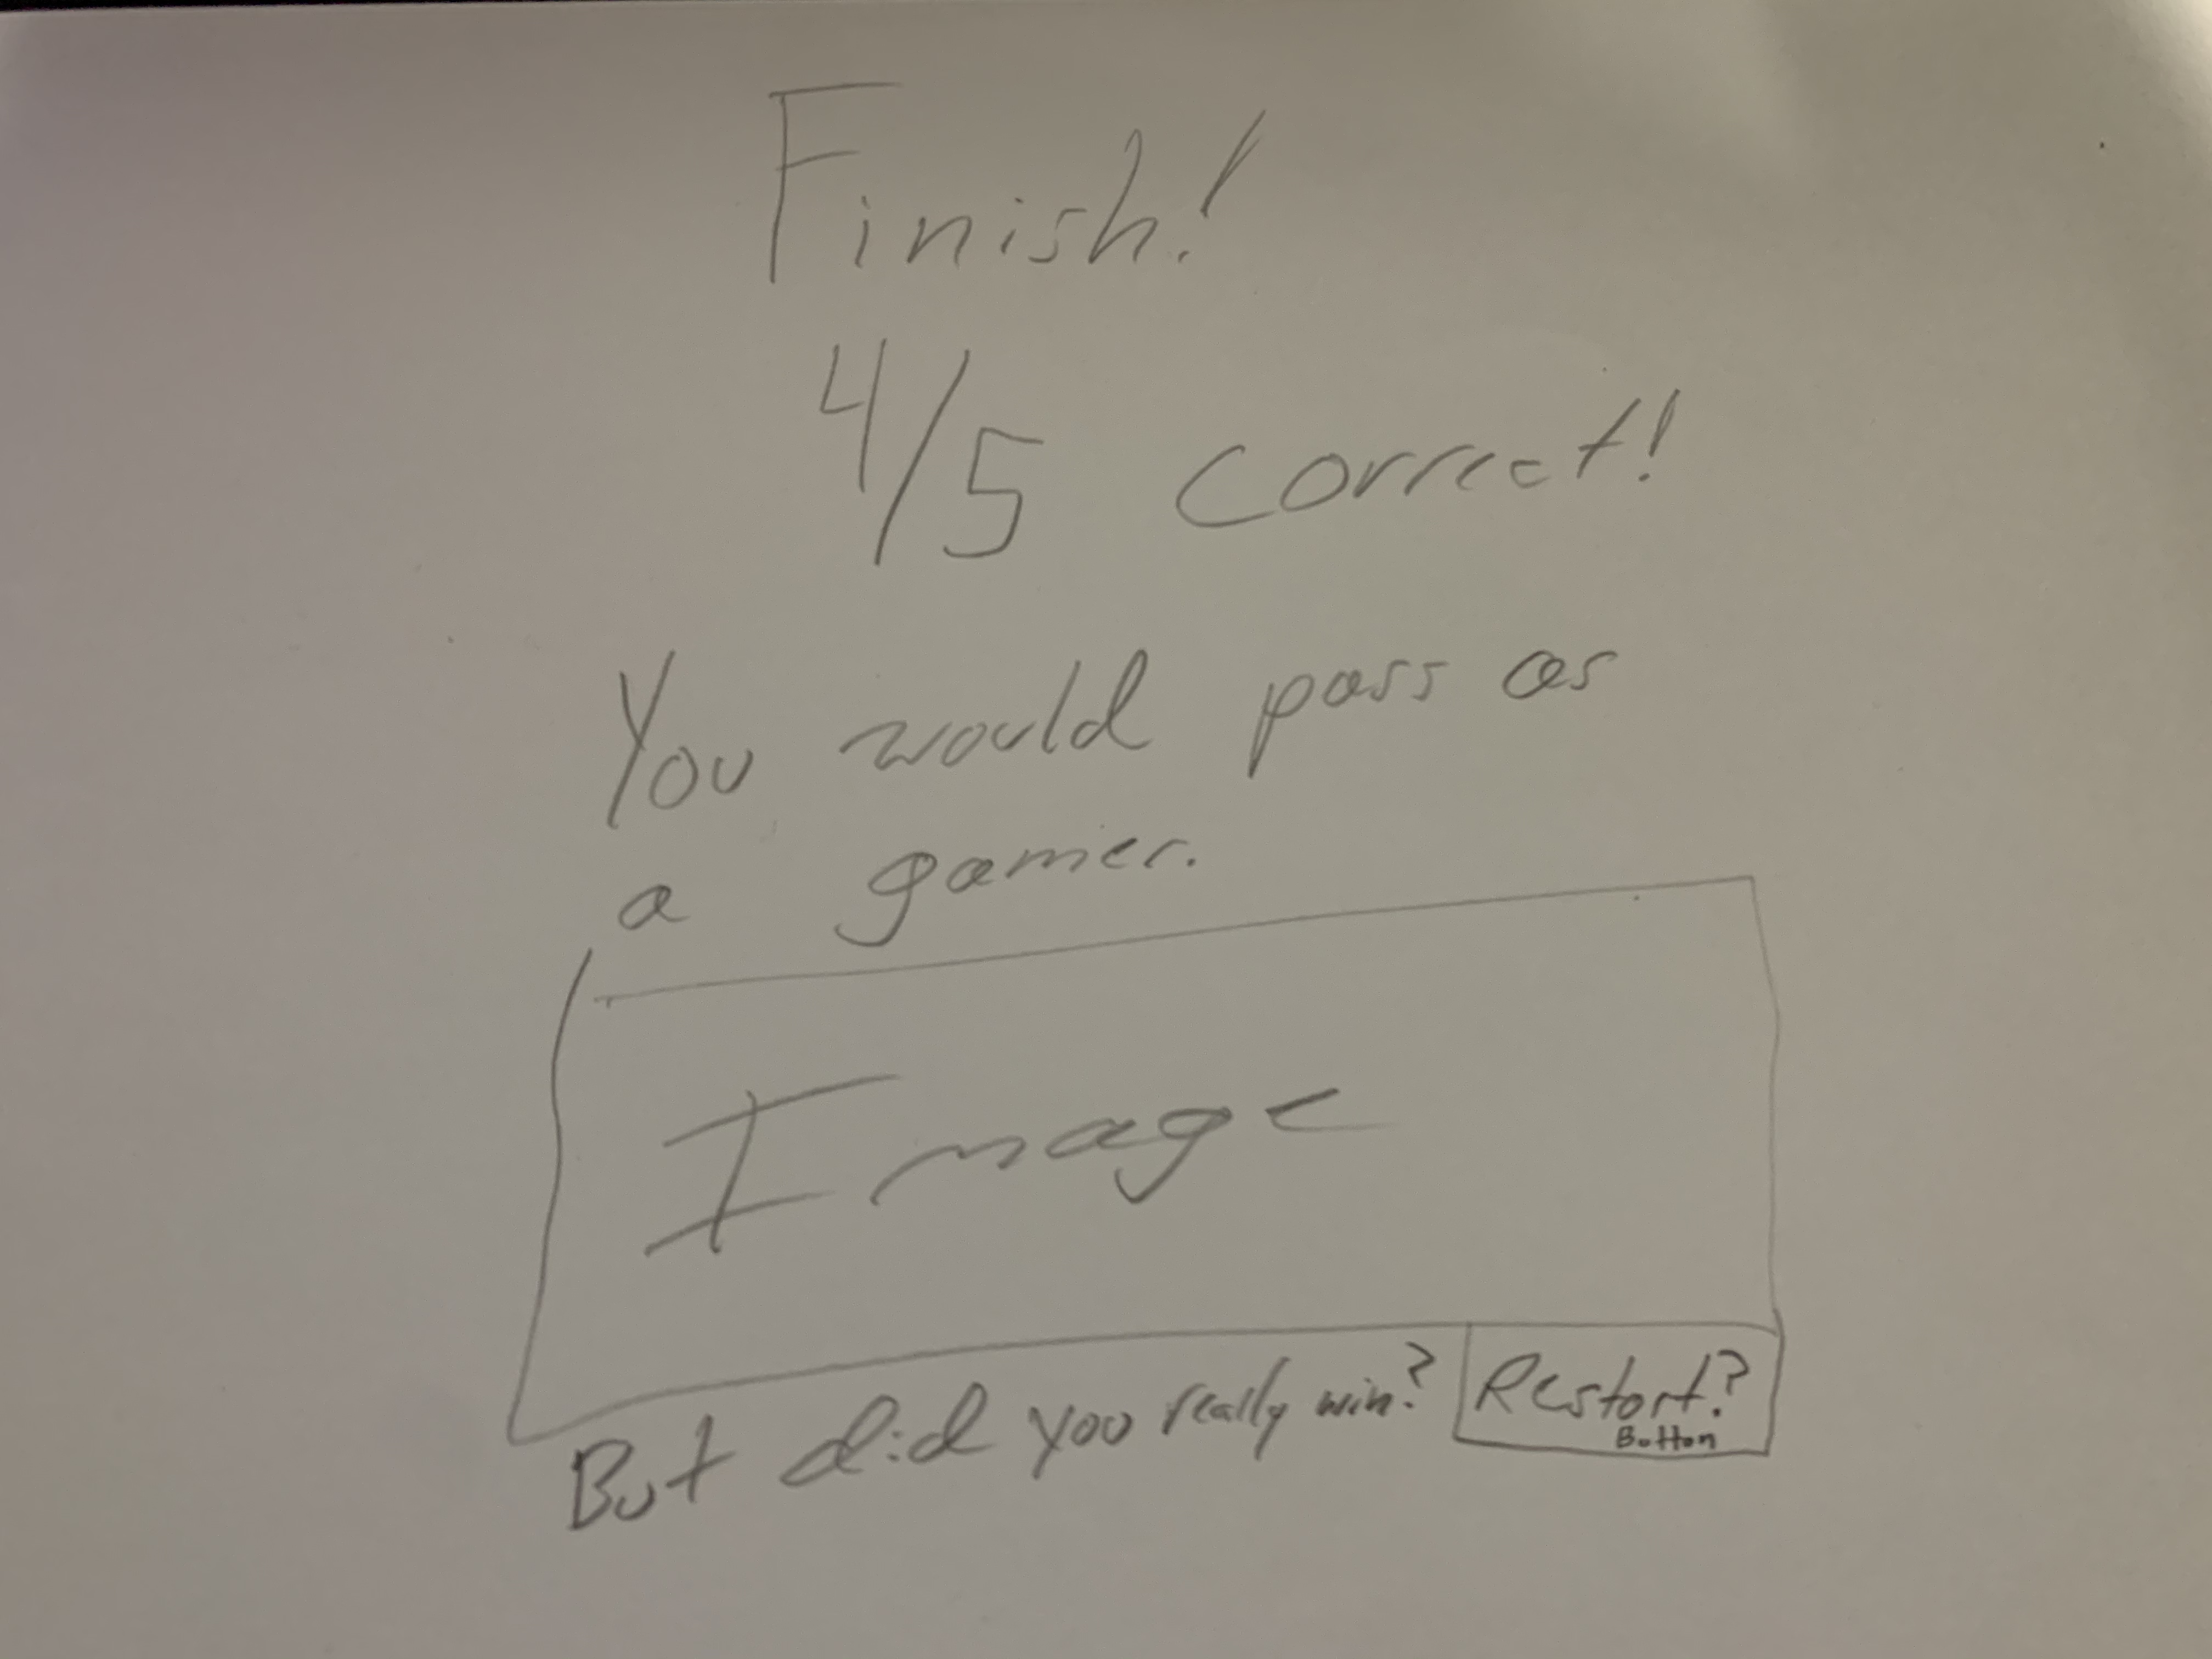 Finish!
4/5 correct!
You would pass as
a gamer.
Image
But did you really win?
Restart?
Button